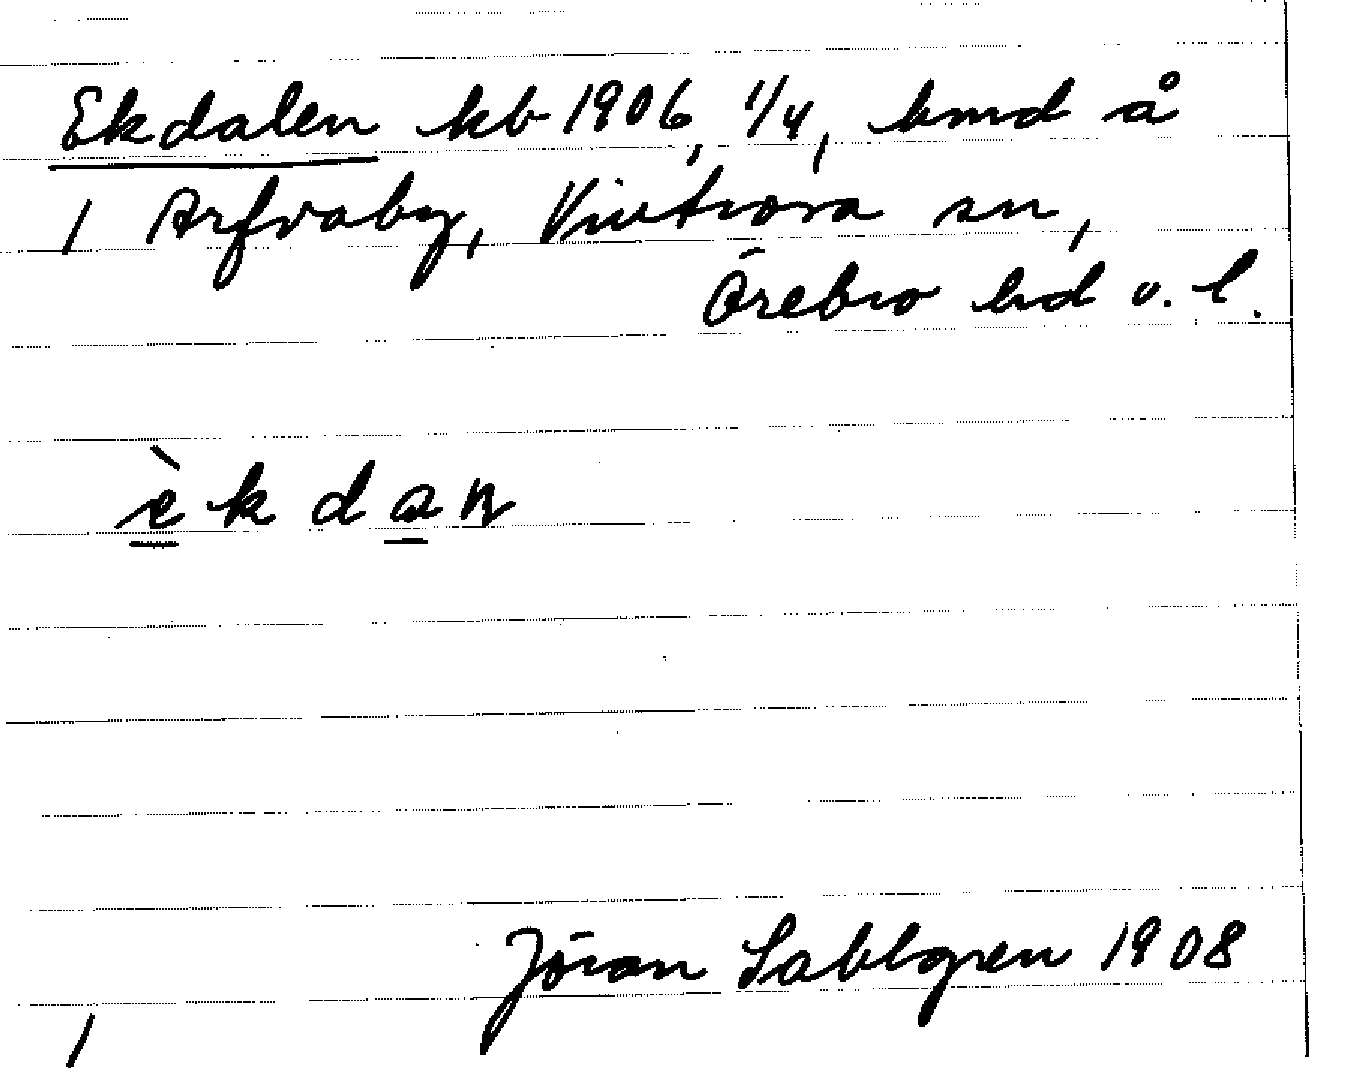 Ekdalen kb 1906, 1/4, hmd å
1 Arfvaby, Vintrosa sn,
Örebro hd o. l.
èkdan
Jöran Sahlgren 1908
1